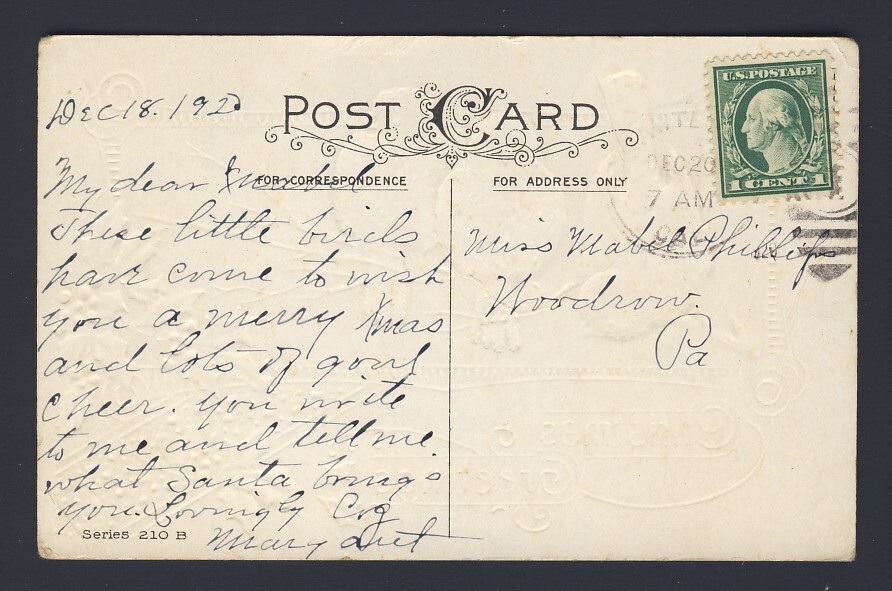 Dec 18. 192
POST CARD
U.S. POSTAGE
1 CENT 1
DEC 20
7 AM
CAL
FOR CORRESPONDENCE
FOR ADDRESS ONLY
My dear
These little birds
have come to wish
you a merry Xmas
and lots of good
cheer. you write
to me and tell me
what Santa brings
you. Lovingly
Margaret
Series 210 B
Miss Mabel Phillips
Woodrow.
Pa